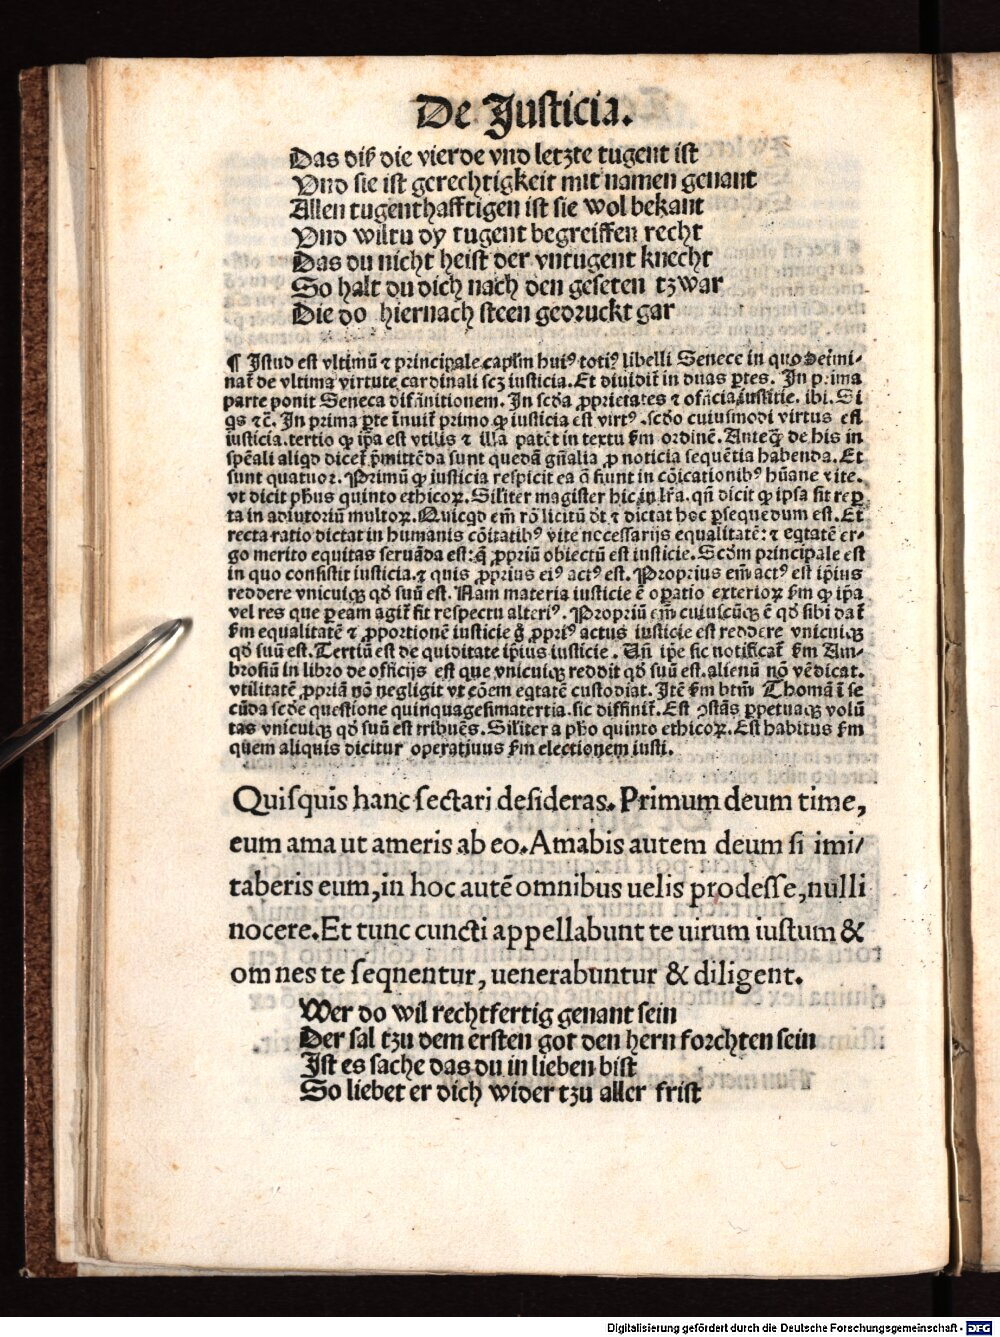 De Justicia.
Das diß die vierde vnd letzte tugent ist
Vnd sie ist gerechtigkeit mit namen genant
Allen tugenthafftigen ist sie wol bekant
Vnd wiltu dy tugent begreiffen recht
Das du nicht heist der vntugent knecht
So halt du dich nach den geseten tzwar
Die do hiernach steen gedruckt gar
¶ Istud est vltimū ⁊ principale capłm huiꝰ totiꝰ libelli Senece in quo determi-
nat̃ de vltima virtute cardinali scz iusticia. Et diuidit̃ in duas ꝑtes. In prima
parte ponit Seneca diffinitionem. In scďa ꝓprietates ⁊ officia iustitie. ibi. Si
qs ⁊c̃. In prima ꝑte īnuit̃ primo ꝙ iusticia est virtꝰ. scďo cuiusmodi virtus est
iusticia. tertio ꝙ ip̃a est vtilis ⁊ illa patēt in textu ẜm ordinē. Anteꝙ̃ de his in
spēali aliqd dicet̃ p̄mittēda sunt quedā gñalia ꝓ noticia sequētia habenda. Et
sunt quatuor. Primū ꝙ iusticia respicit ea q̄ fiunt in cōicationibꝰ hūane vite.
vt dicit ph̃us quinto ethicoꝝ. Siliter magister hic in lr̃a. qñ dicit ꝙ ipsa sit reper
ta in adiutoriū multoꝝ. Quicqd em̃ rō licitū dt̃ ⁊ dictat hoc ꝑsequedum est. Et
recta ratio dictat in humanis cōitatibꝰ vite necessarijs equalitatē: ⁊ eqtatē er-
go merito equitas seruāda est: q̄ ꝓpriū obiectū est iusticie. Scďm principale est
in quo consistit iusticia. ⁊ quis ꝓprius eiꝰ actꝰ est. Proprius em̃ actꝰ est ip̃ius
reddere vnicuiqꝫ qď suū est. Nam materia iusticie ē oꝑatio exterioꝝ ẜm ꝙ ip̃a
vel res que ꝑ eam agit̃ fit respectu alteriꝰ. Propriū em̃ cuiuscūqꝫ ē qď sibi dat̃
ẜm equalitatē ⁊ ꝓportionē iusticie g̊ ꝓpriꝰ actus iusticie est reddere vnicuiqꝫ
qď suū est. Tertiū est de quiditate ip̃ius iusticie. Uñ ip̃e sic notificat̃ ẜm Am-
brosiū in libro de officijs est que vnicuiqꝫ reddit qď suū est. alienū nō vēdicat.
vtilitatē ꝓpriā nō negligit vt cōem eqtatē custodiat. Itē ẜm btm̃ Thomā ī se
cūda scďe questione quinquagesimatertia. sic diffinit̃. Est ꝯstās ꝑpetuaqꝫ volū
tas vnicuiqꝫ qď suū est tribuēs. Siliter a ph̃o quinto ethicoꝝ. Est habitus ẜm
quem aliquis dicitur operatiuus ẜm electionem iusti.
Quisquis hanc sectari desideras. Primum deum time,
eum ama ut ameris ab eo. Amabis autem deum si imi/
taberis eum, in hoc autē omnibus uelis prodesse, nulli
nocere. Et tunc cuncti appellabunt te uirum iustum &
omnes te seqnentur, uenerabuntur & diligent.
Wer do wil rechtfertig genant sein
Der sal tzu dem ersten got den hern forchten sein
Ist es sache das du in lieben bist
So liebet er dich wider tzu aller frist
Digitalisierung gefördert durch die Deutsche Forschungsgemeinschaft - DFG